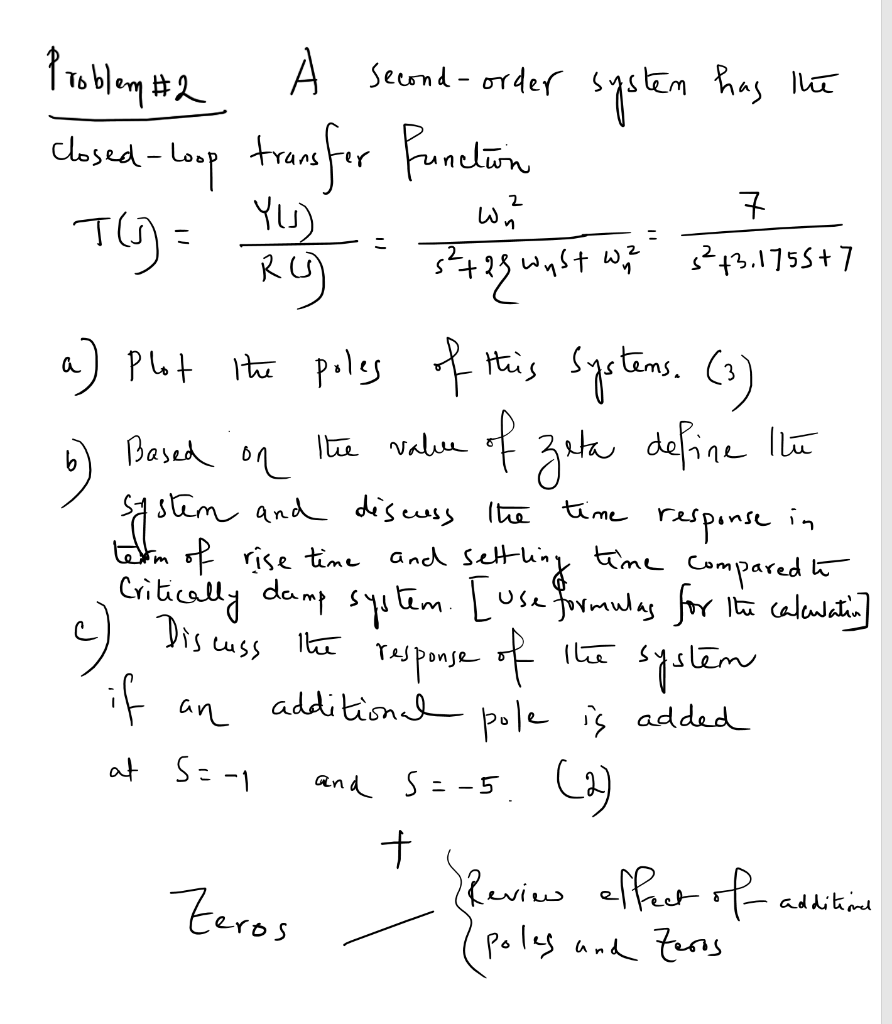 Problem #2 A second-order system has the
closed-loop transfer function
T(s) = Y(s)/R(s) = ωn²/(s²+2ξωns+ωn²) = 7/(s²+3.175s+7)
a) Plot the poles of this systems. (3)
b) Based on the value of zeta define the
system and discuss the time response in
term of rise time and settling time compared to
Critically damp system. [Use formulas for the calculatin]
c) Discuss the response of the system
if an additional pole is added
at S=-1 and S=-5. (2)
+
Zeros — { Review effect of additional
poles and zeros